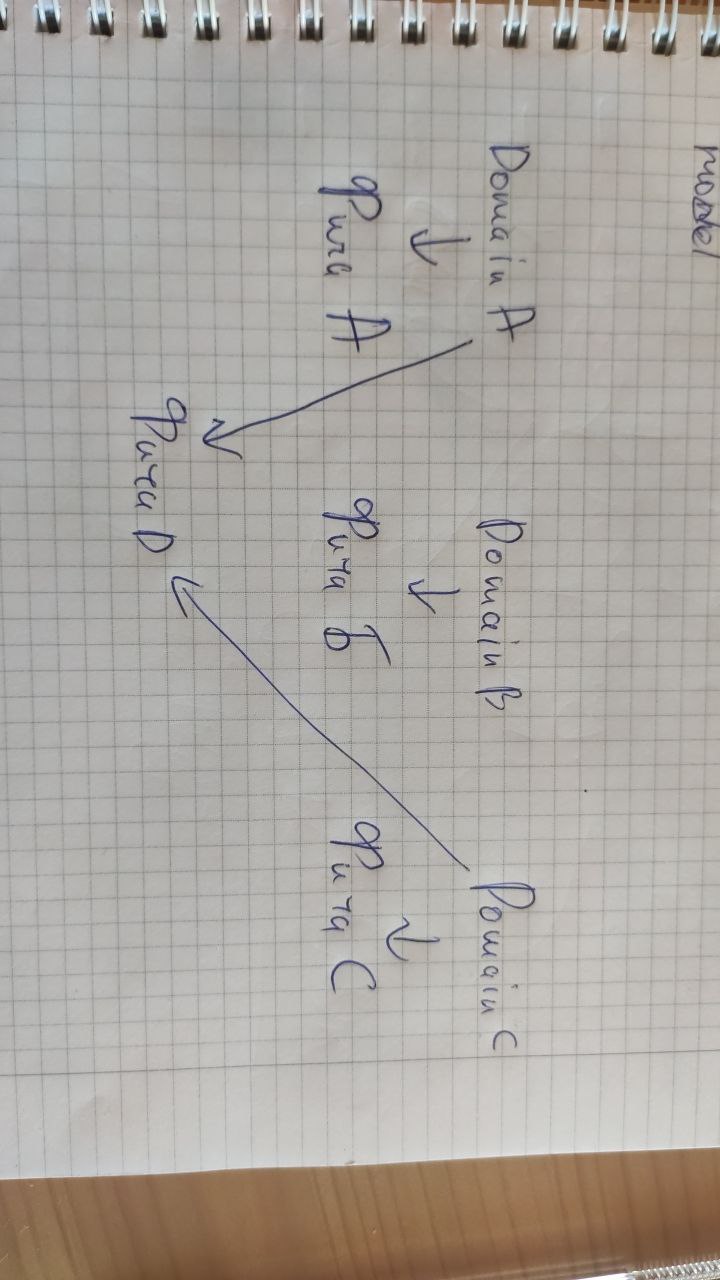 model
Domain A Domain B Domain C
↓ ↓ ↓
Фича А Фича Б Фича С
Фича D